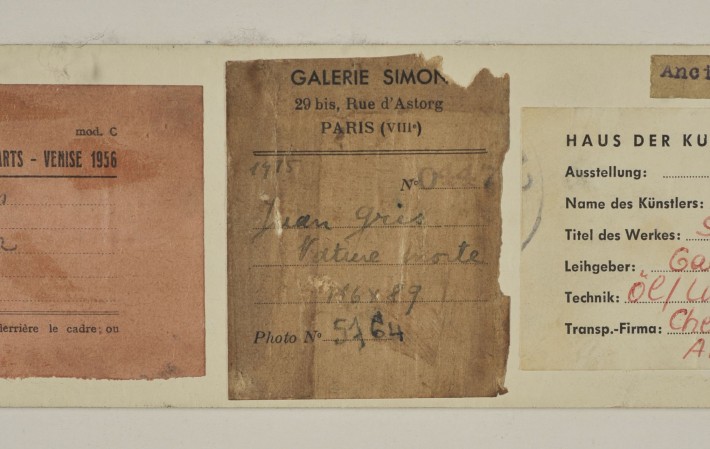 mod. C
ARTS - VENISE 1956
derrière le cadre; ou
GALERIE SIMON
29 bis, Rue d'Astorg
PARIS (VIIIe)
1915
No
Juan Gris
Nature morte
116x89
Photo No 5164
Anci
HAUS DER KU
Ausstellung:
Name des Künstlers:
Titel des Werkes: S
Leihgeber: Ga
Technik: Öl/
Transp.-Firma: Che
A